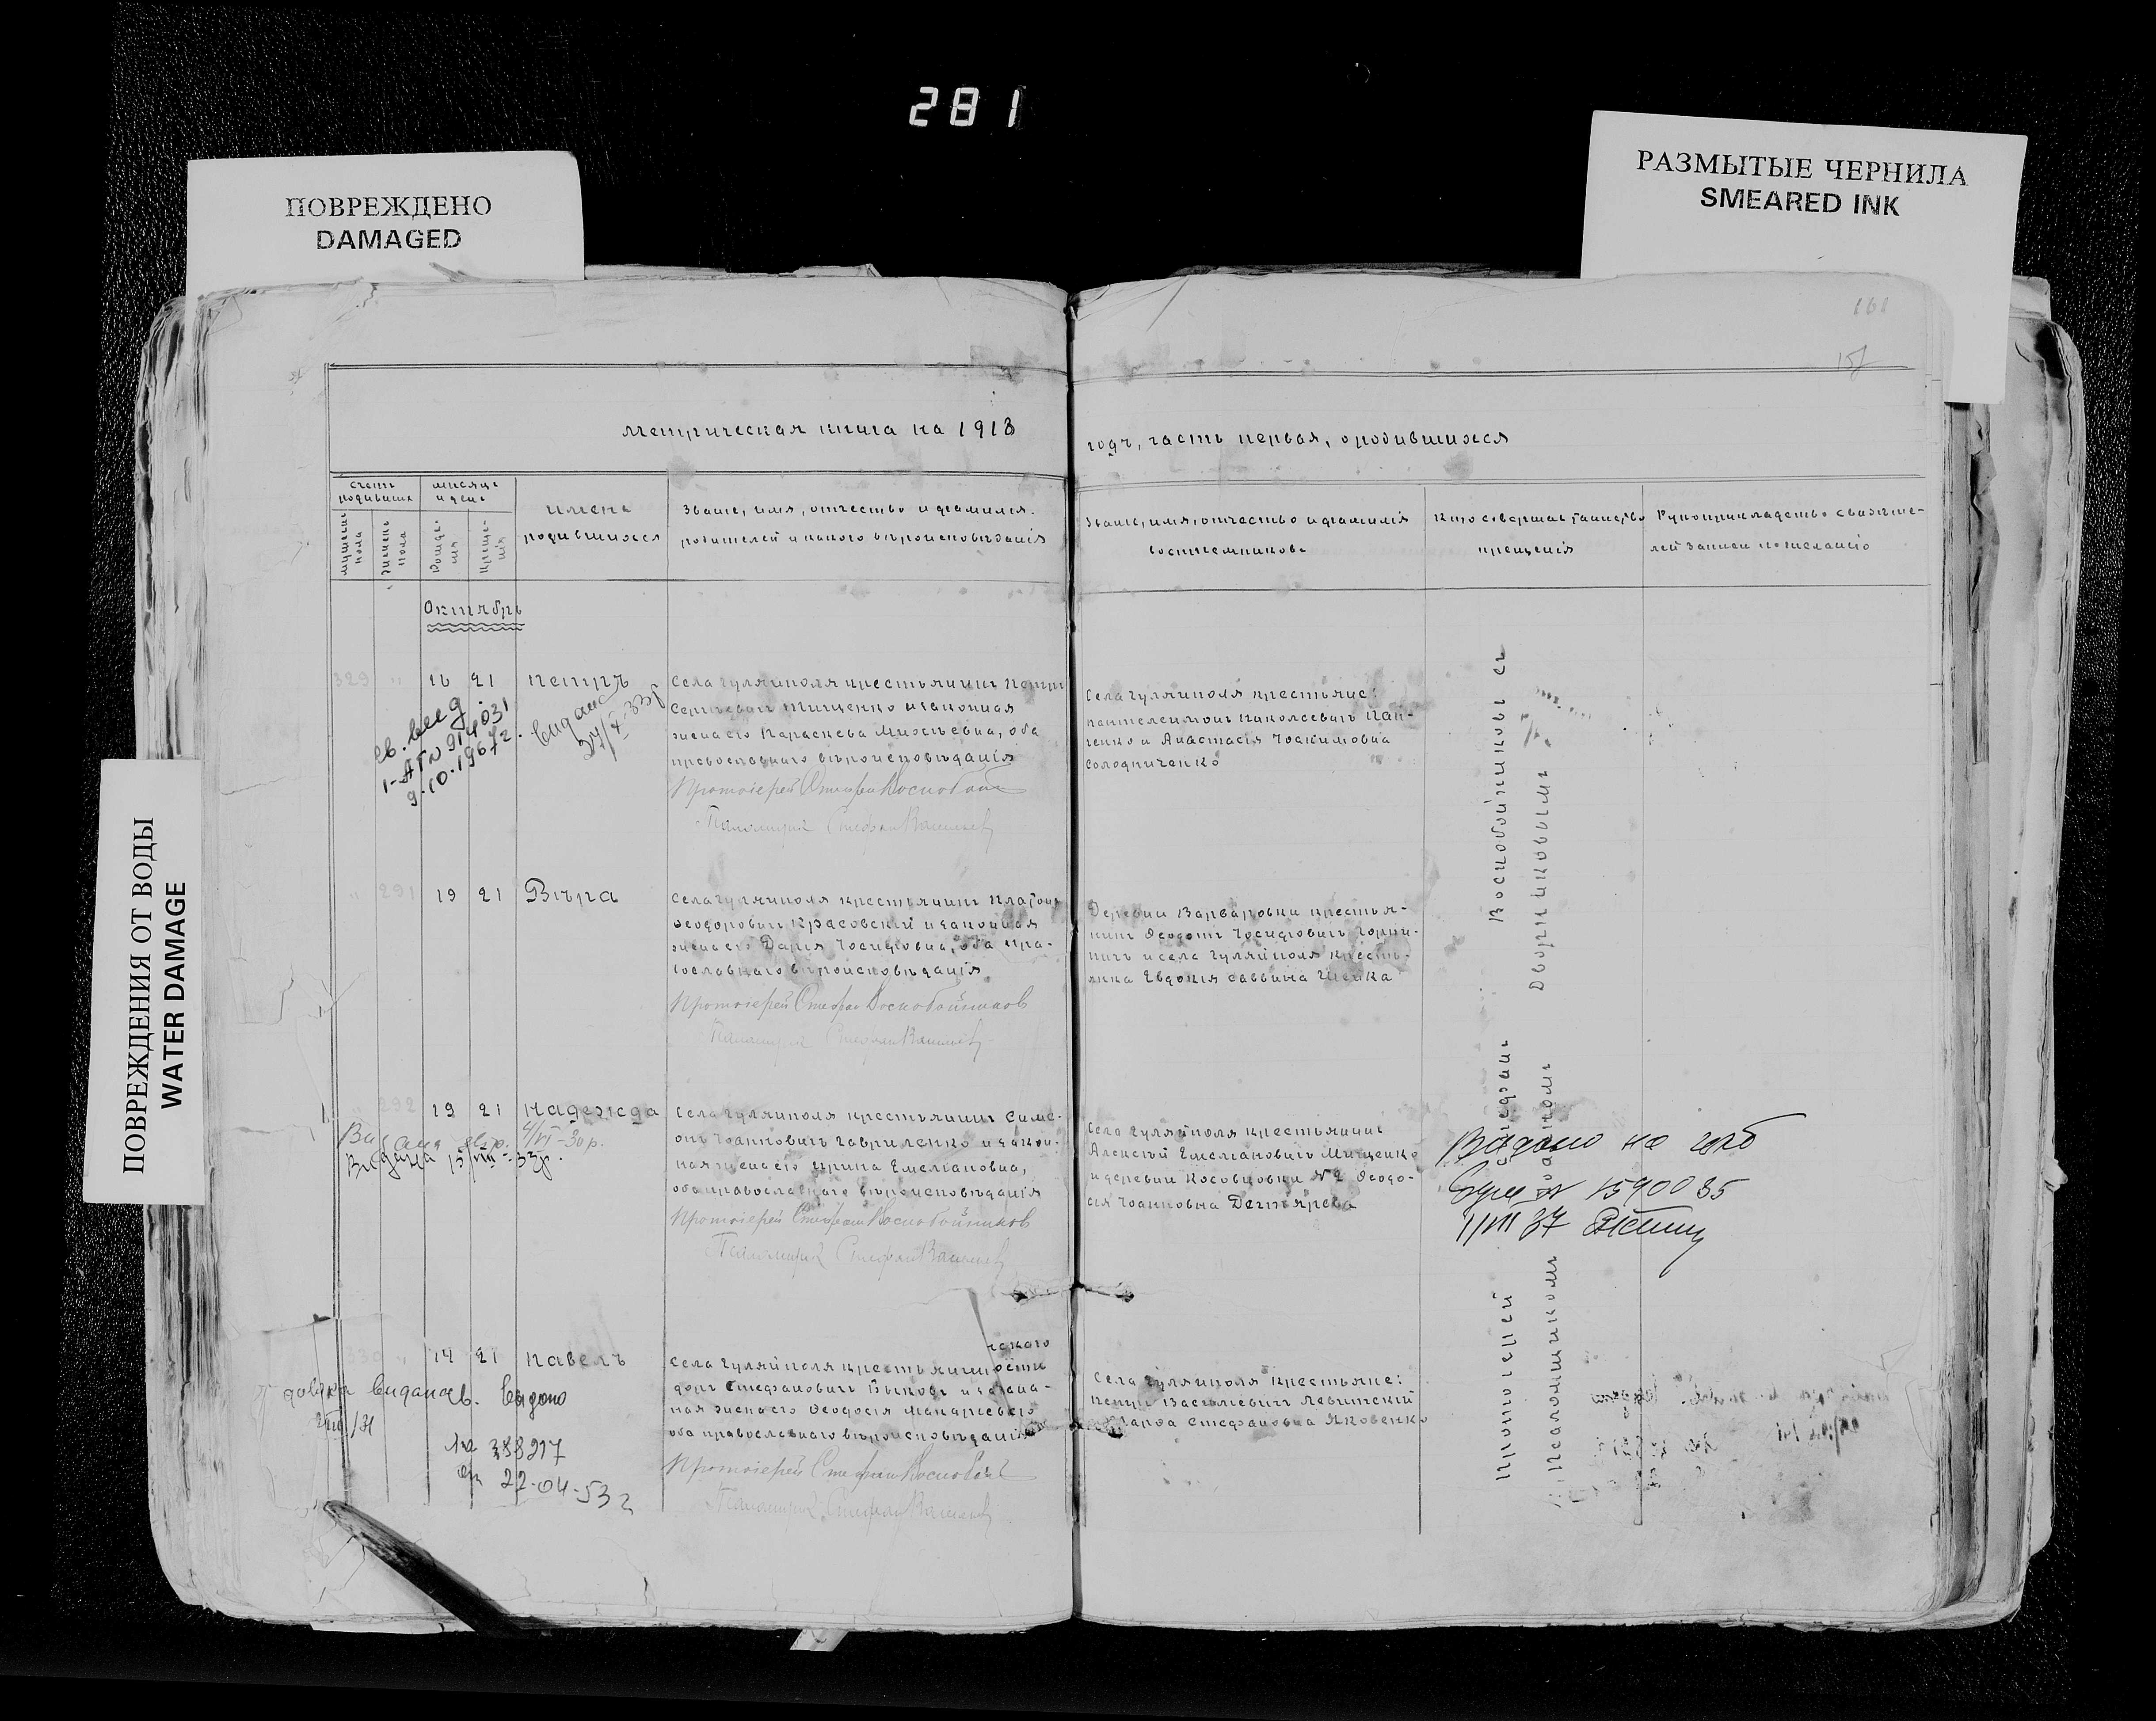 281
ПОВРЕЖДЕНО
DAMAGED
РАЗМЫТЫЕ ЧЕРНИЛА
SMEARED INK
ПОВРЕЖДЕНИЯ ОТ ВОДЫ
WATER DAMAGE
161
Метрическая книга на 1913
годъ, часть первая, о родившихся
счетъ родивших
мужеска пола
женска пола
мѣсяцъ и день
рожде-
нія
креще-
нія
имена
родившихся
Званіе, имя, отчество и фамилія
родителей и какого вѣроисповѣданія
Званіе, имя, отчество и фамилія
воспріемниковъ
Кто совершал таинство
крещенія
Рукоприкладство свидѣте-
лей записи по желанію
Октябрь
329 " 16 21 Петръ
Села Гуляйполя крестьянинъ Петръ
Сергѣевич Тищенко и законная
жена его Параскева Моисѣевна, оба
православнаго вѣроисповѣданія
Протоіерей Стефан Воскобой
Псаломщик Стефан
Села Гуляйполя крестьяне:
Пантелеимонъ Николаевичъ Пан-
ченко и Анастасія Іоакимовна
Солодниченко
914031
9.10.1967г.
видано
" 291 19 21 Вѣра
Села Гуляйполя крестьянинъ Платонъ
Ѳеодоровичъ Красовскій и законная
жена его Дарія Іосифовна, оба пра-
вославнаго вѣроисповѣданія
Протоіерей Стефан Воскобойников
Псаломщик Стефан
Деревни Варваровки крестья-
нинъ Ѳеодотъ Іосифовичъ Горпи-
ничъ и села Гуляйполя кресть-
янка Евдокія Саввина
" 292 19 21 Надежда
Села Гуляйполя крестьянинъ Симе-
онъ Іоанновичъ Гавриленко и закон-
ная жена его Ирина Емеліановна,
оба православнаго вѣроисповѣданія
Протоіерей Стефан Воскобойников
Псаломщик Стефан
Села Гуляйполя крестьянинъ
Алексѣй Емеліановичъ Мищенко
и деревни Косовцовки №2 Ѳеодо-
сія Іоанновна Дегтярева
Видана 15/VIII-33р.
Видано на
1590035
330 " 14 21 Павелъ
Села Гуляйполя крестьянинъ
Стефановичъ Быковъ и закон-
ная жена его Ѳеодосія Макаріевна
оба православнаго вѣроисповѣданія
Протоіерей Стефан Воскобой
Псаломщик Стефан
Села Гуляйполя крестьяне:
Петръ Васильевич Левитскій
и Марѳа Стефановна Яковенко
видано
22-04-53 г
Протоіерей Стефанъ Воскобойниковъ съ
псаломщикомъ Дворниковымъ